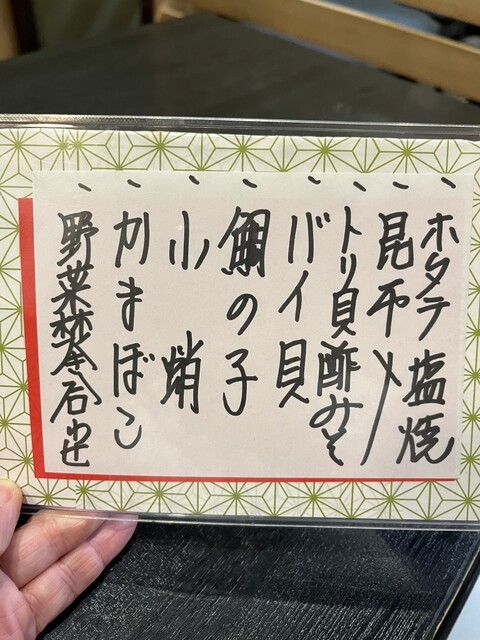 、ホタテ塩焼
、昆布〆
、トリ貝酢みそ
、バイ貝
、鯛の子
、小蛸
、かまぼこ
、野菜焚合わせ